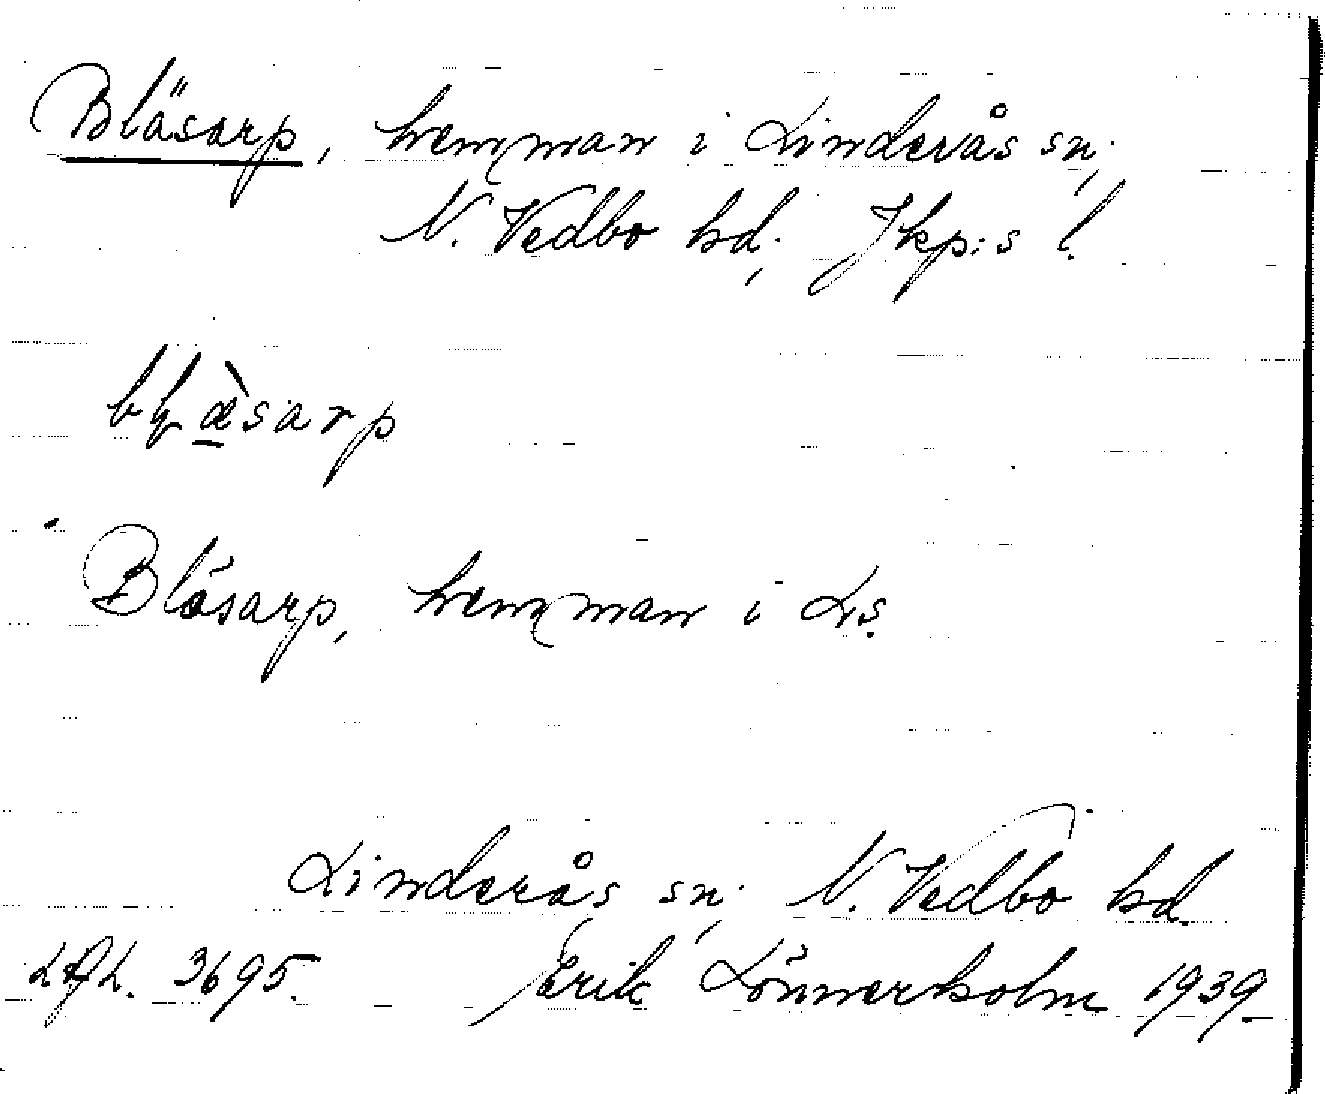 Bläsarp, hemman i Linderås sn;
N. Vedbo hd; Jkp:s l.
bḷæ̀sarp
Bläsarp, hemman i Ls.
Linderås sn; N. Vedbo hd.
3695. Erik Lönnerholm 1939